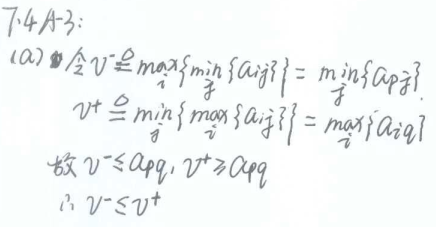 7.4 A-3:
(a) 令 v⁻ ≜ max_i{min_j{aij}} = min_j{apj}.
v⁺ ≜ min_j{max_i{aij}} = max_i{aiq}
故 v⁻ ≤ apq, v⁺ ≥ apq
∴ v⁻ ≤ v⁺